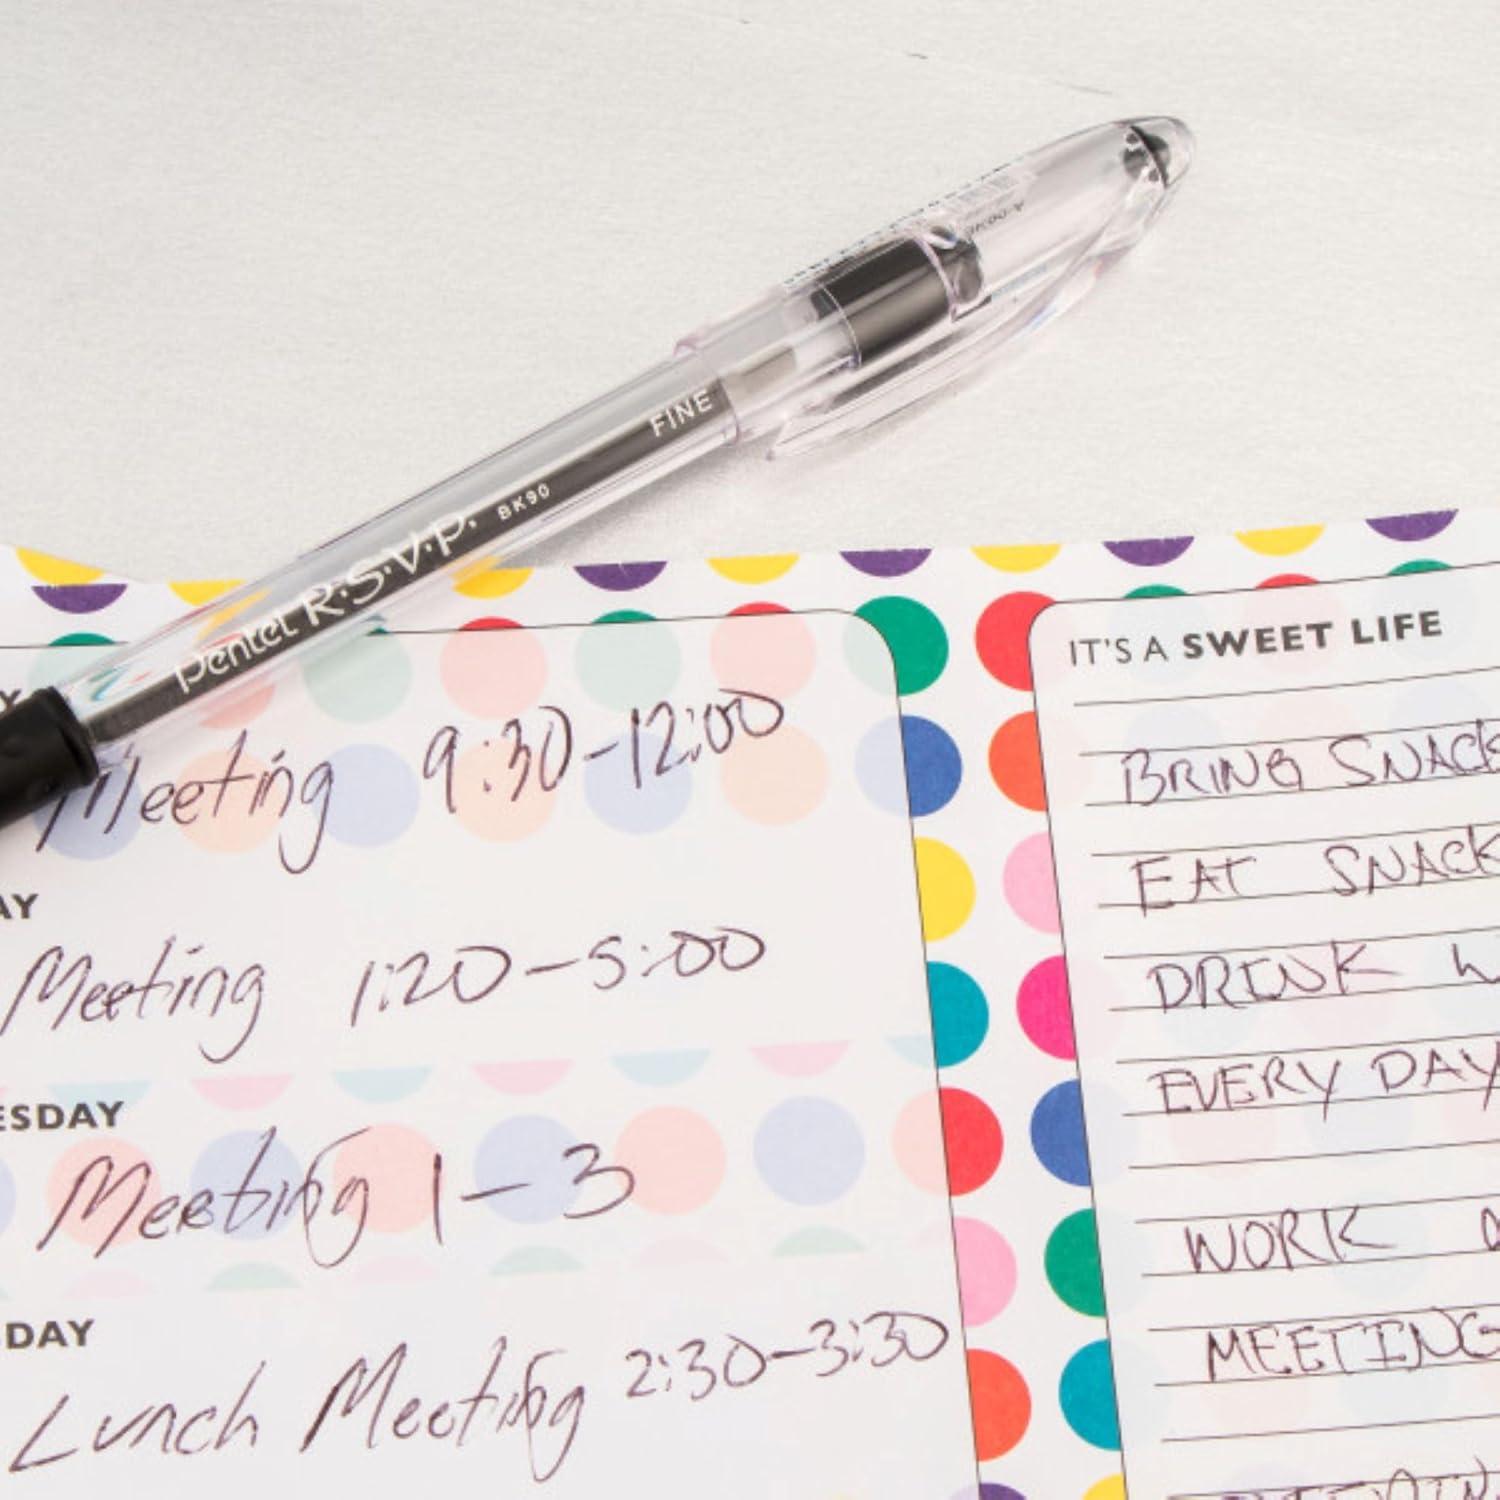 FINE
BK90
Pentel R·S·V·P.
Meeting 9:30-12:00
AY
Meeting 1:20-5:00
ESDAY
Meeting 1-3
SDAY
Lunch Meeting 2:30-3:30
IT'S A SWEET LIFE
BRING SNACK
EAT SNACK
DRINK W
EVERY DAY
WORK
MEETING